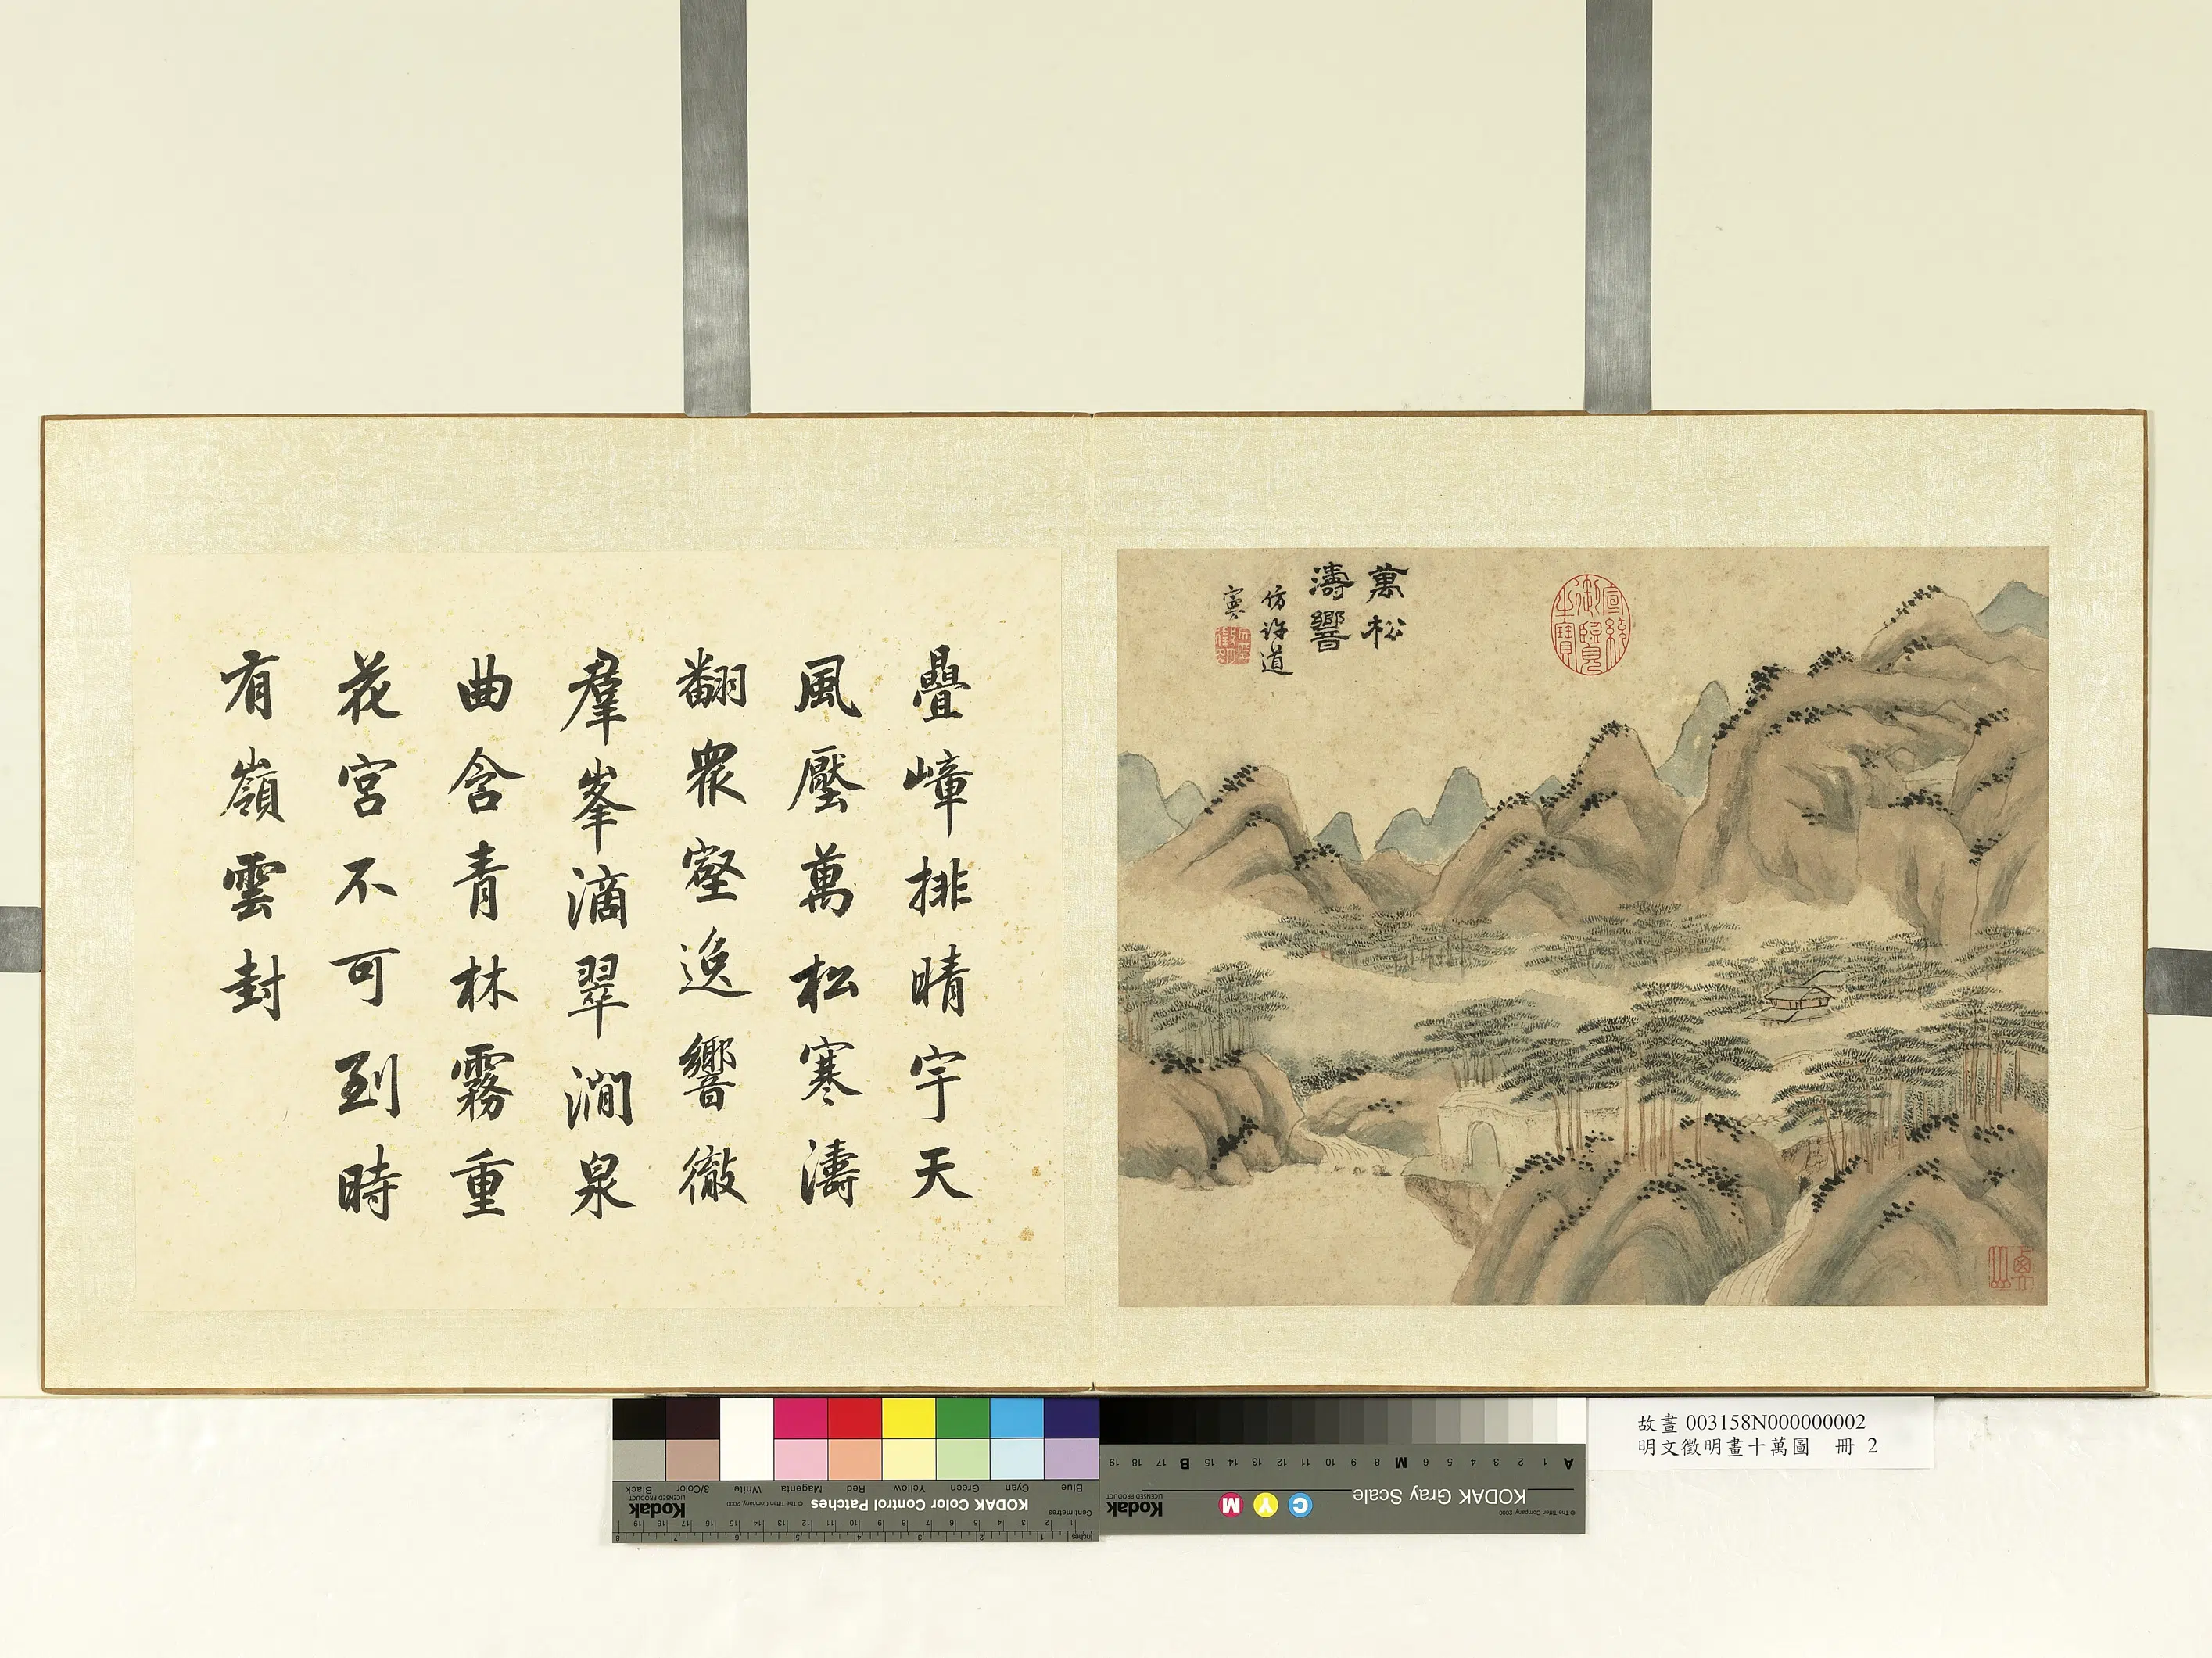 萬松
濤響
仿許道
寧
宣統御覽之寶
疊嶂排晴宇天
風壓萬松寒濤
翻眾壑逸響徹
羣峯滴翠澗泉
曲含青林霧重
花宮不可到時
有嶺雲封
故畫 003158N000000002
明文徵明畫十萬圖 冊 2
Blue
Cyan
Green
Yellow
Red
Magenta
White
3/Color
Black
KODAK Color Control Patches
© The Tiffen Company, 2000
Kodak
LICENSED PRODUCT
Inches
Centimetres
KODAK Gray Scale
© The Tiffen Company, 2000
C Y M
Kodak
LICENSED PRODUCT
A 1 2 3 4 5 6 M 8 9 10 11 12 13 14 15 B 17 18 19